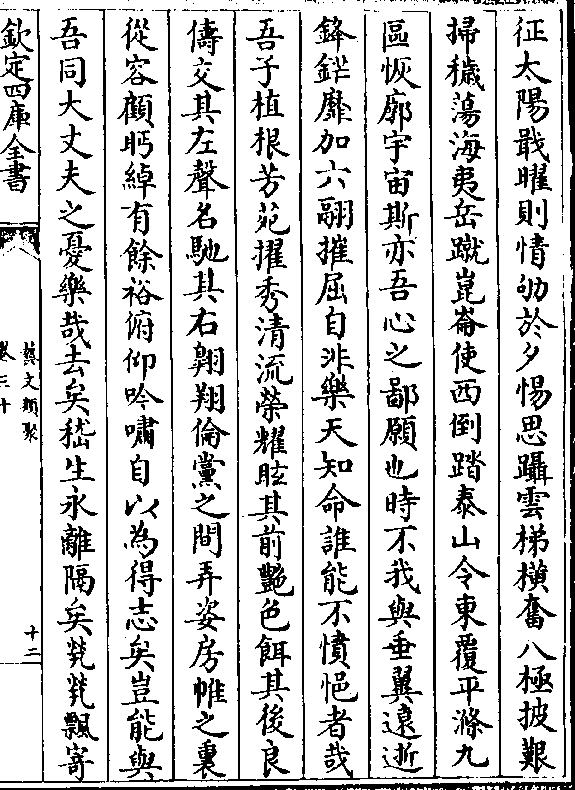 征太陽戢曜則情劬於夕惕思躡雲梯橫奮八極披艱
掃穢蕩海夷岳蹴崑崙使西倒踏泰山令東覆平滌九
區恢廓宇宙斯亦吾心之鄙願也時不我與垂翼遠逝
鋒鉅靡加六翮摧屈自非樂天知命誰能不憤悒者哉
吾子植根芳苑擢秀清流榮耀眩其前艷色餌其後良
儔交其左聲名馳其右翺翔倫黨之間弄姿房帷之裏
從容顧眄綽有餘裕俯仰吟嘯自以為得志矣豈能與
吾同大丈夫之憂樂哉去矣嵇生永離隔矣煢煢飄寄
欽定四庫全書
藝文類聚
卷三十
十二